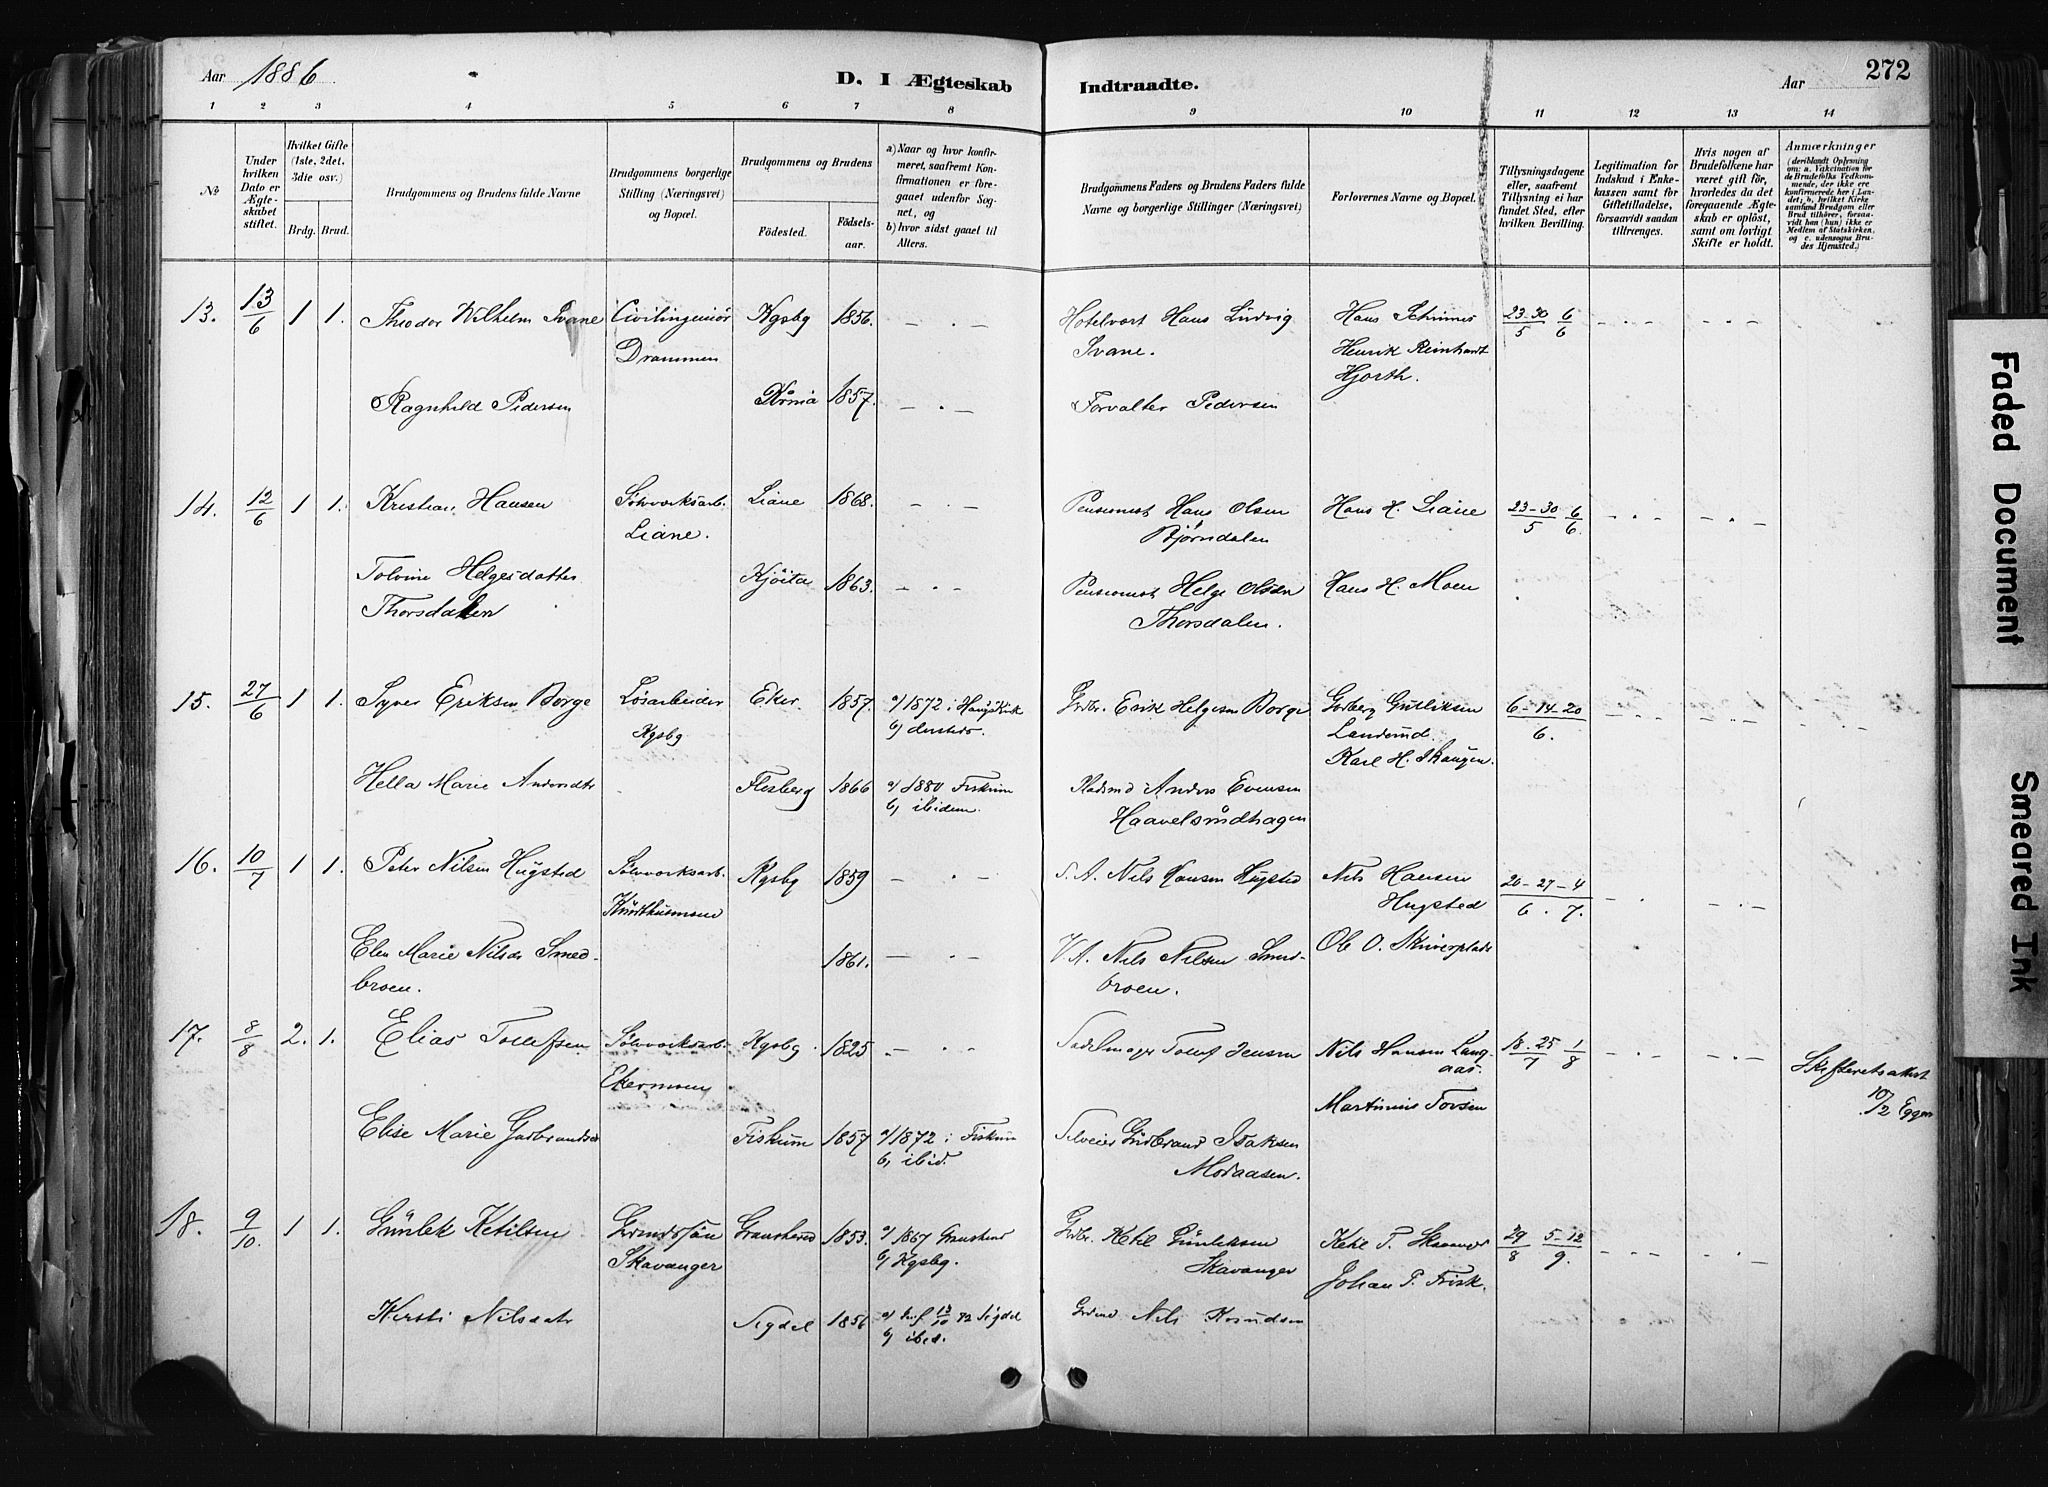 Aar 1886
D. I Ægteskab
Indtraadte.
Aar
272
1 2 3 4 5 6 7 8 9 10 11 12 13 14
No
Under hvilken Dato er Ægteskabet stiftet.
Hvilket Gifte (1ste, 2det, 3die osv.)
Brdg. Brud.
Brudgommens og Brudens fulde Navne
Brudgommens borgerlige Stilling (Næringsvei) og Bopæl.
Brudgommens og Brudens
Födested.
Födselsaar.
a) Naar og hvor konfirmeret, saafremt Konfirmationen er foregaaet udenfor Sognet, og
b) hvor sidst gaaet til Alters.
Brudgommens Faders og Brudens Faders fulde Navne og borgerlige Stillinger (Næringsvei)
Forlovernes Navne og Bopæl.
Tillysningsdagene eller, saafremt Tillysning ei har fundet Sted, efter hvilken Bevilling.
Legitimation for Indskud i Enkekassen samt for Giftetilladelse, forsaavidt saadan tiltrænges.
Hvis nogen af Brudefolkene har været gift för, hvorledes da det foregaaende Ægteskab er oplöst, samt om lovligt Skifte er holdt.
Anmærkninger
(deriblandt Oplysning om: a. Vakcination for de Brudefolks Vedkommende, der ikke ere konfirmerede her i Landet; b. hvilket Kirkesamfund Brudgom eller Brud tilhörer, forsaavidt han (hun) ikke er Medlem af Statskirken, og c. udensogns Brudes Hjemsted.)
13. 13/6 1 1. Theodor Wilhelm Svane Civilingeniör Kgsbg 1856. Hotelvært Hans Ludvig Hans 23-30/5 6/6
Drammen Svane. Henrik Reinhardt
Hjorth.
Ragnhild Pedersen 1857. Forvalter Pedersen
14. 12/6 1 1. Kristian Hansen Sölvverksarb. Liane 1868. Pensionist Hans Olsen Hans H. Liane 23-30/5 6/6.
Liane. Björndalen
Tolvine Helgesdatter 1863. Pensionist Helge Olsen Hans H. Moen
Thorsdalen Thorsdalen.
15. 27/6 1 1. Syver Eriksen Borge Lösarbeider Eker. 1857. a) 1872 i Gdbr. Erik Helgesen Borge Gutliksen 6-14-20/6.
Kgsbg b) dersteds. Landerud.
Karl H. Skaugen.
Hella Marie Andersdtr Flesberg 1866 a) 1880 Fiskum Pladsmd Anders Evensen
b) ibidem. Haavelsrudhagen
16. 10/7 1 1. Peter Nilsen Hugsted Sölvverksarb. Kgsbg 1859 S. A. Nils Hansen Hugsted Nils Hansen 20-27-4/6. 7.
Hugsted
Elen Marie Nilsdr Smed- 1861. V. A. Nils Nilsen Smed- Ole O. Skriverplads
broen. broen.
17. 8/8 2. 1. Elias Tollefsen Sölvverksarb. Kgsbg 1825 Sadelmager Tollef Jensen Nils Hansen Lang- 18-25/7 1/8
Ekermoen aas. Skifteretsattest
Martinius Torsen 10/2 Eggen
Elise Marie Fiskum 1857 a) 1872 i Fiskum Gudbrand Isaksen
b) ibid. Moraasen.
18. 9/10. 1 1. Gunlek Ketilsen Gransherad 1853. a) 1867 Gransherad Gdbr. Ketil Gunleksen Ketil T. Skavanger 29/8 5-12/9.
Skavanger b) Kgsbg. Skavanger Johan P. Frisk.
Kirsti Nilsdatr Sigdel 1856 a) 13/10 72 Sigdel Grdmd Nils Knudsen
b) ibid.
Faded Document
Smeared Ink